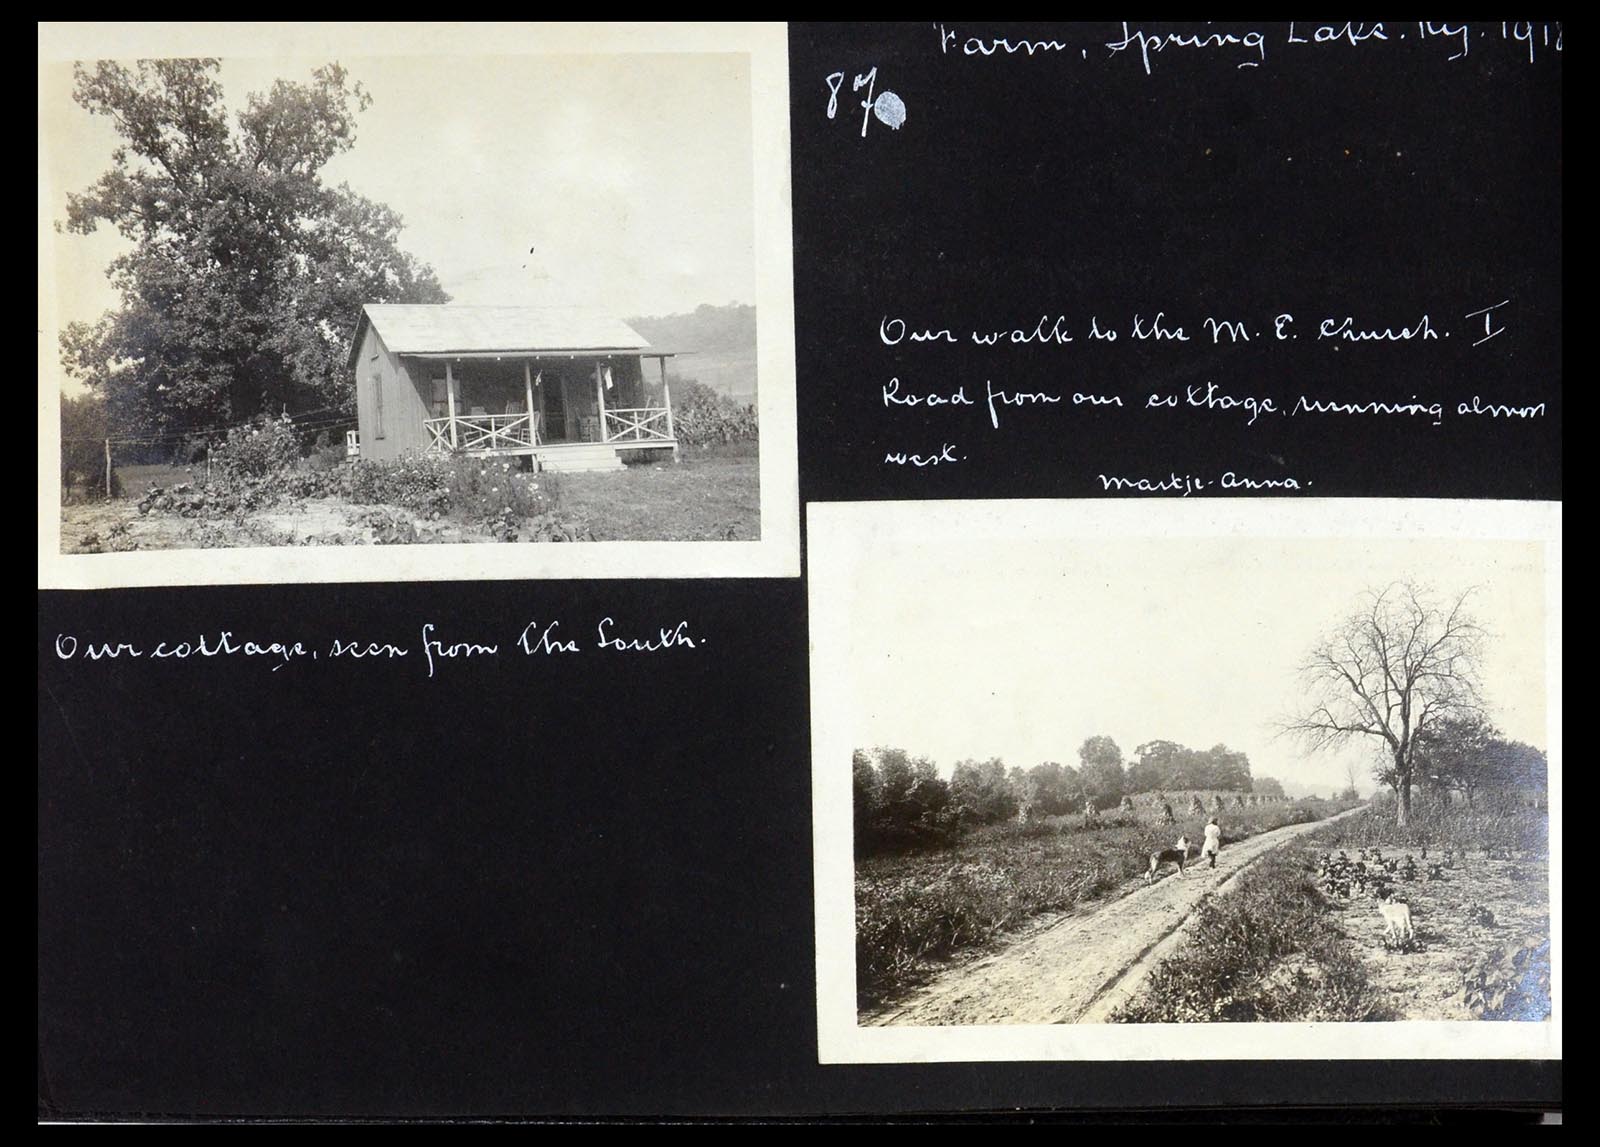 Farm, Spring Lake. Ky. 1918
87
Our walk to the M. E. Church. I
Road from our cottage, running almost
west.
Martje-Anna.
Our cottage, seen from the South.